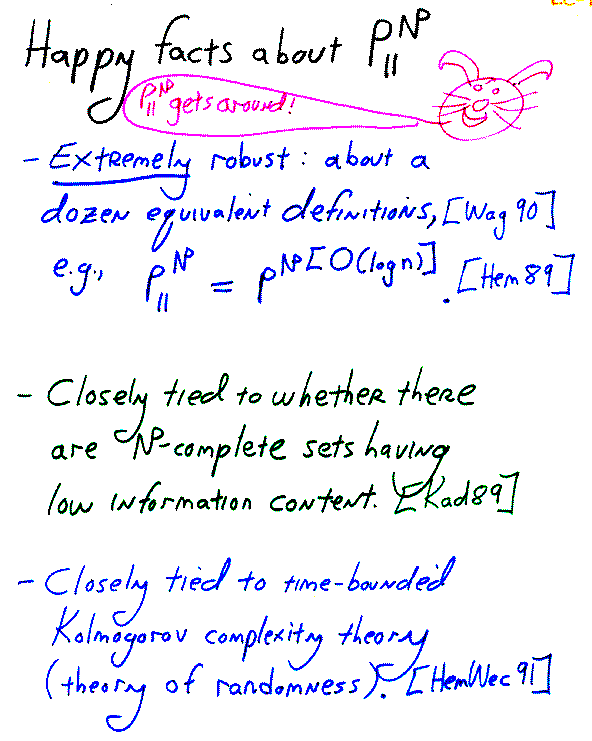 Happy facts about P_||^NP
P_||^NP gets around!
- Extremely robust: about a
dozen equivalent definitions, [Wag 90]
e.g., P_||^NP = P^NP[O(log n)]. [Hem 89]
- Closely tied to whether there
are NP-complete sets having
low information content. [Kad89]
- Closely tied to time-bounded
Kolmogorov complexity theory
(theory of randomness). [HemWec 91]